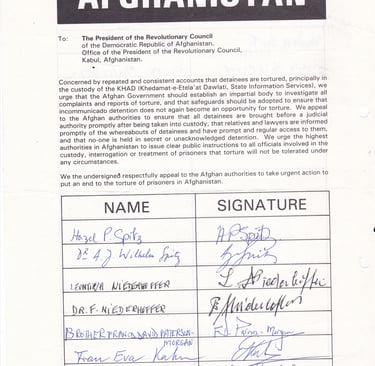 AFGHANISTAN
To: The President of the Revolutionary Council
of the Democratic Republic of Afghanistan,
Office of the President of the Revolutionary Council,
Kabul, Afghanistan.
Concerned by repeated and consistent accounts that detainees are tortured, principally
in the custody of the KHAD (Khedamat-e-Etela'at Dawlati, State Information Services), we
urge that the Afghan Government should establish an impartial body to investigate all
complaints and reports of torture, and that safeguards should be adopted to ensure that
incommunicado detention does not again become an opportunity for torture. We appeal
to the Afghan authorities to ensure that all detainees are brought before a judicial
authority promptly after being taken into custody, that relatives and lawyers are informed
promptly of the whereabouts of detainees and have prompt and regular access to them,
and that no-one is held in secret or unacknowledged detention. We urge the highest
authorities in Afghanistan to issue clear public instructions to all officials involved in the
custody, interrogation or treatment of prisoners that torture will not be tolerated under
any circumstances.
We the undersigned respectfully appeal to the Afghan authorities to take urgent action to
put an end to the torture of prisoners in Afghanistan.
NAME SIGNATURE
Hazel P. Spitz H P Spitz
Dr A. J. Wilhelm Spitz
NIEDERHOFFER
DR. F. NIEDERHOFFER
BROTHER FRANCIS DAVID PATERSON-
MORGAN
Frau Eva Kahn